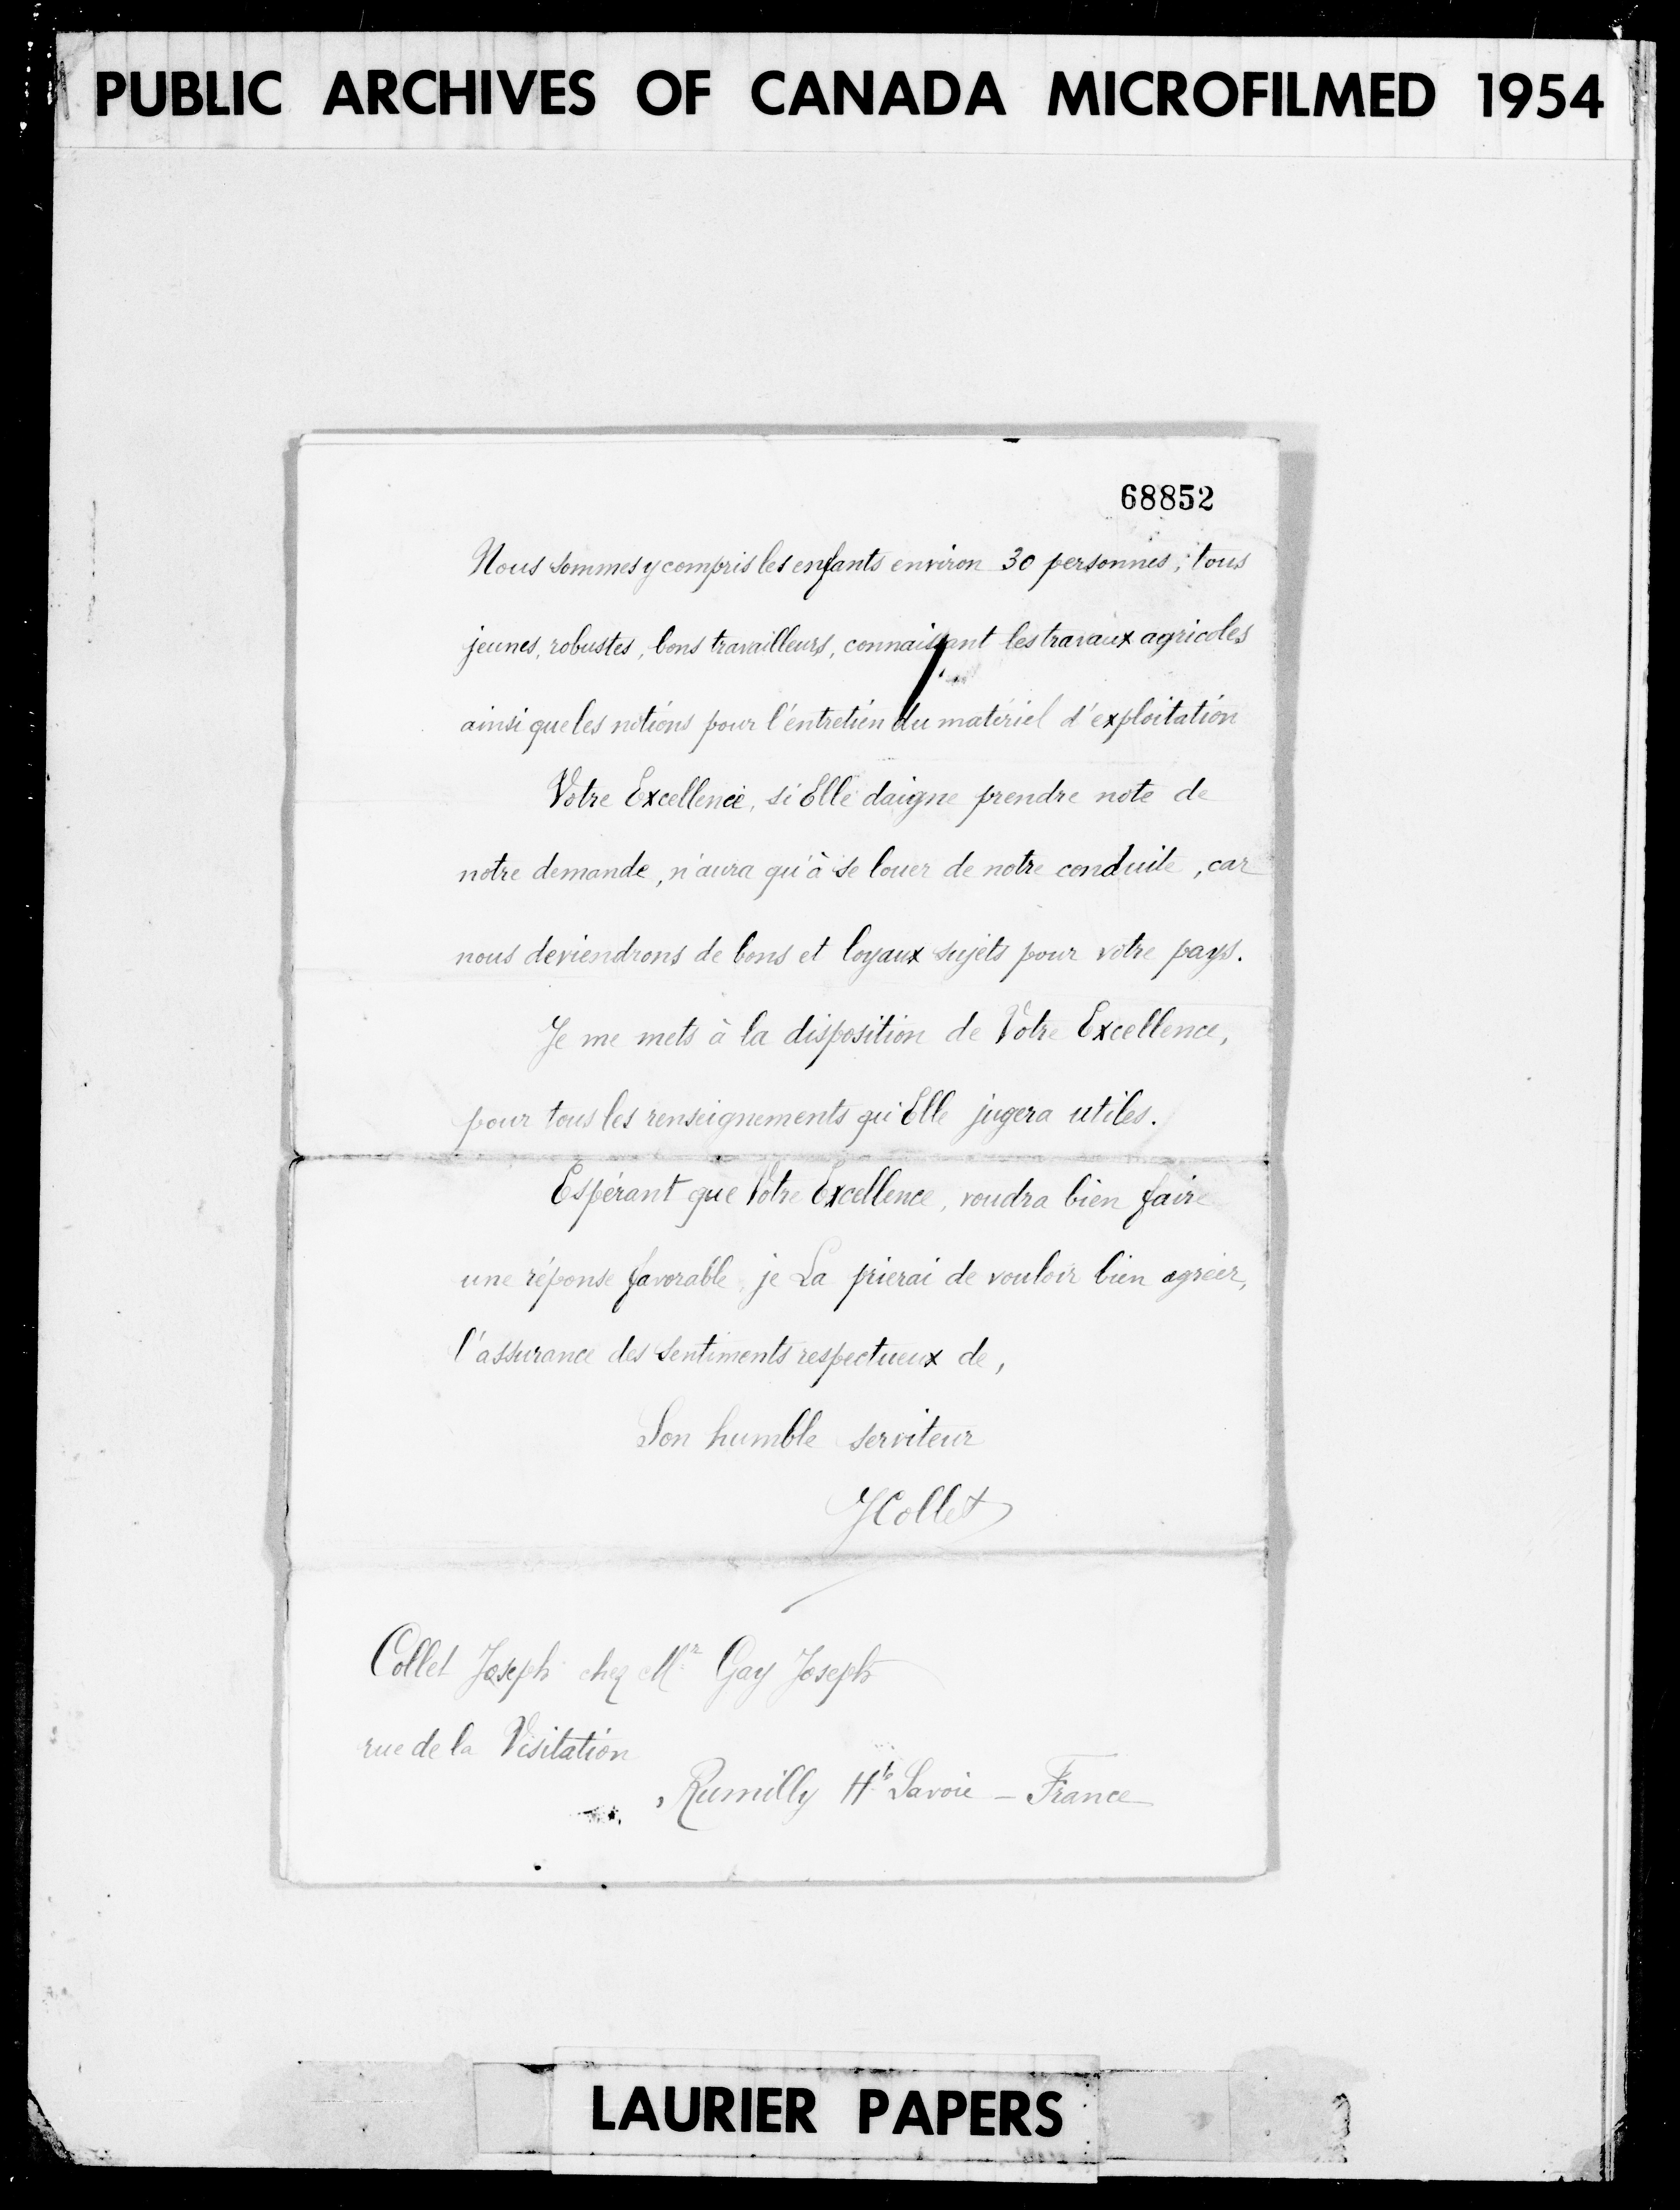 PUBLIC ARCHIVES OF CANADA MICROFILMED 1954
68852
Nous sommes y compris les enfants environ 30 personnes; tous
jeunes, robustes, bons travailleurs, connaissant les travaux agricoles
ainsi que les notions pour l'entretien du matériel d'exploitation
Votre Excellence, si Elle daigne prendre note de
notre demande, n'aura qu'à se louer de notre conduite, car
nous deviendrons de bons et loyaux sujets pour votre pays.
Je me mets à la disposition de Votre Excellence,
pour tous les renseignements qu'Elle jugera utiles.
Espérant que Votre Excellence, voudra bien faire
une réponse favorable, je La prierai de vouloir bien agréer,
l'assurance des sentiments respectueux de,
Son humble serviteur
JCollet
Collet Joseph chez Mr Gay Joseph
rue de la Visitation
Rumilly Hte Savoie - France
LAURIER PAPERS